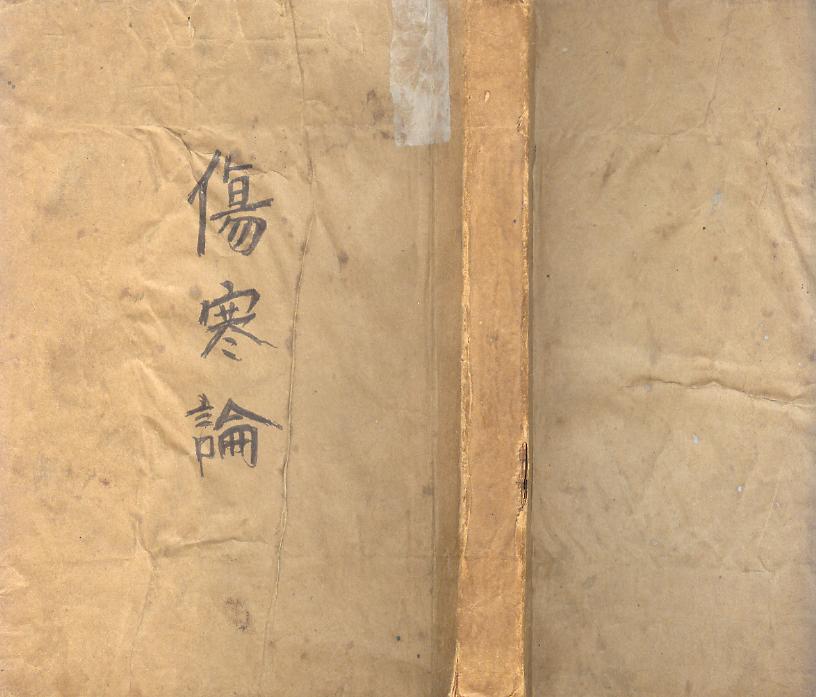 傷寒論